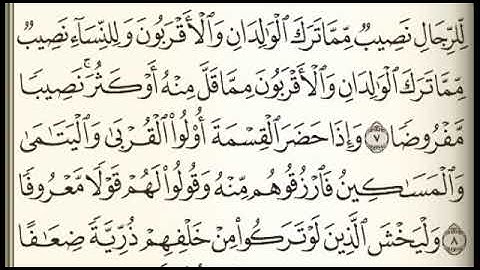 لِّلرِّجَالِ نَصِيبٌ مِّمَّا تَرَكَ ٱلْوَٰلِدَانِ وَٱلْأَقْرَبُونَ وَلِلنِّسَآءِ نَصِيبٌ
مِّمَّا تَرَكَ ٱلْوَٰلِدَانِ وَٱلْأَقْرَبُونَ مِمَّا قَلَّ مِنْهُ أَوْ كَثُرَ ۚ نَصِيبًا
مَّفْرُوضًا ٧ وَإِذَا حَضَرَ ٱلْقِسْمَةَ أُو۟لُوا۟ ٱلْقُرْبَىٰ وَٱلْيَتَٰمَىٰ
وَٱلْمَسَٰكِينُ فَٱرْزُقُوهُم مِّنْهُ وَقُولُوا۟ لَهُمْ قَوْلًا مَّعْرُوفًا
٨ وَلْيَخْشَ ٱلَّذِينَ لَوْ تَرَكُوا۟ مِنْ خَلْفِهِمْ ذُرِّيَّةً ضِعَٰفًا